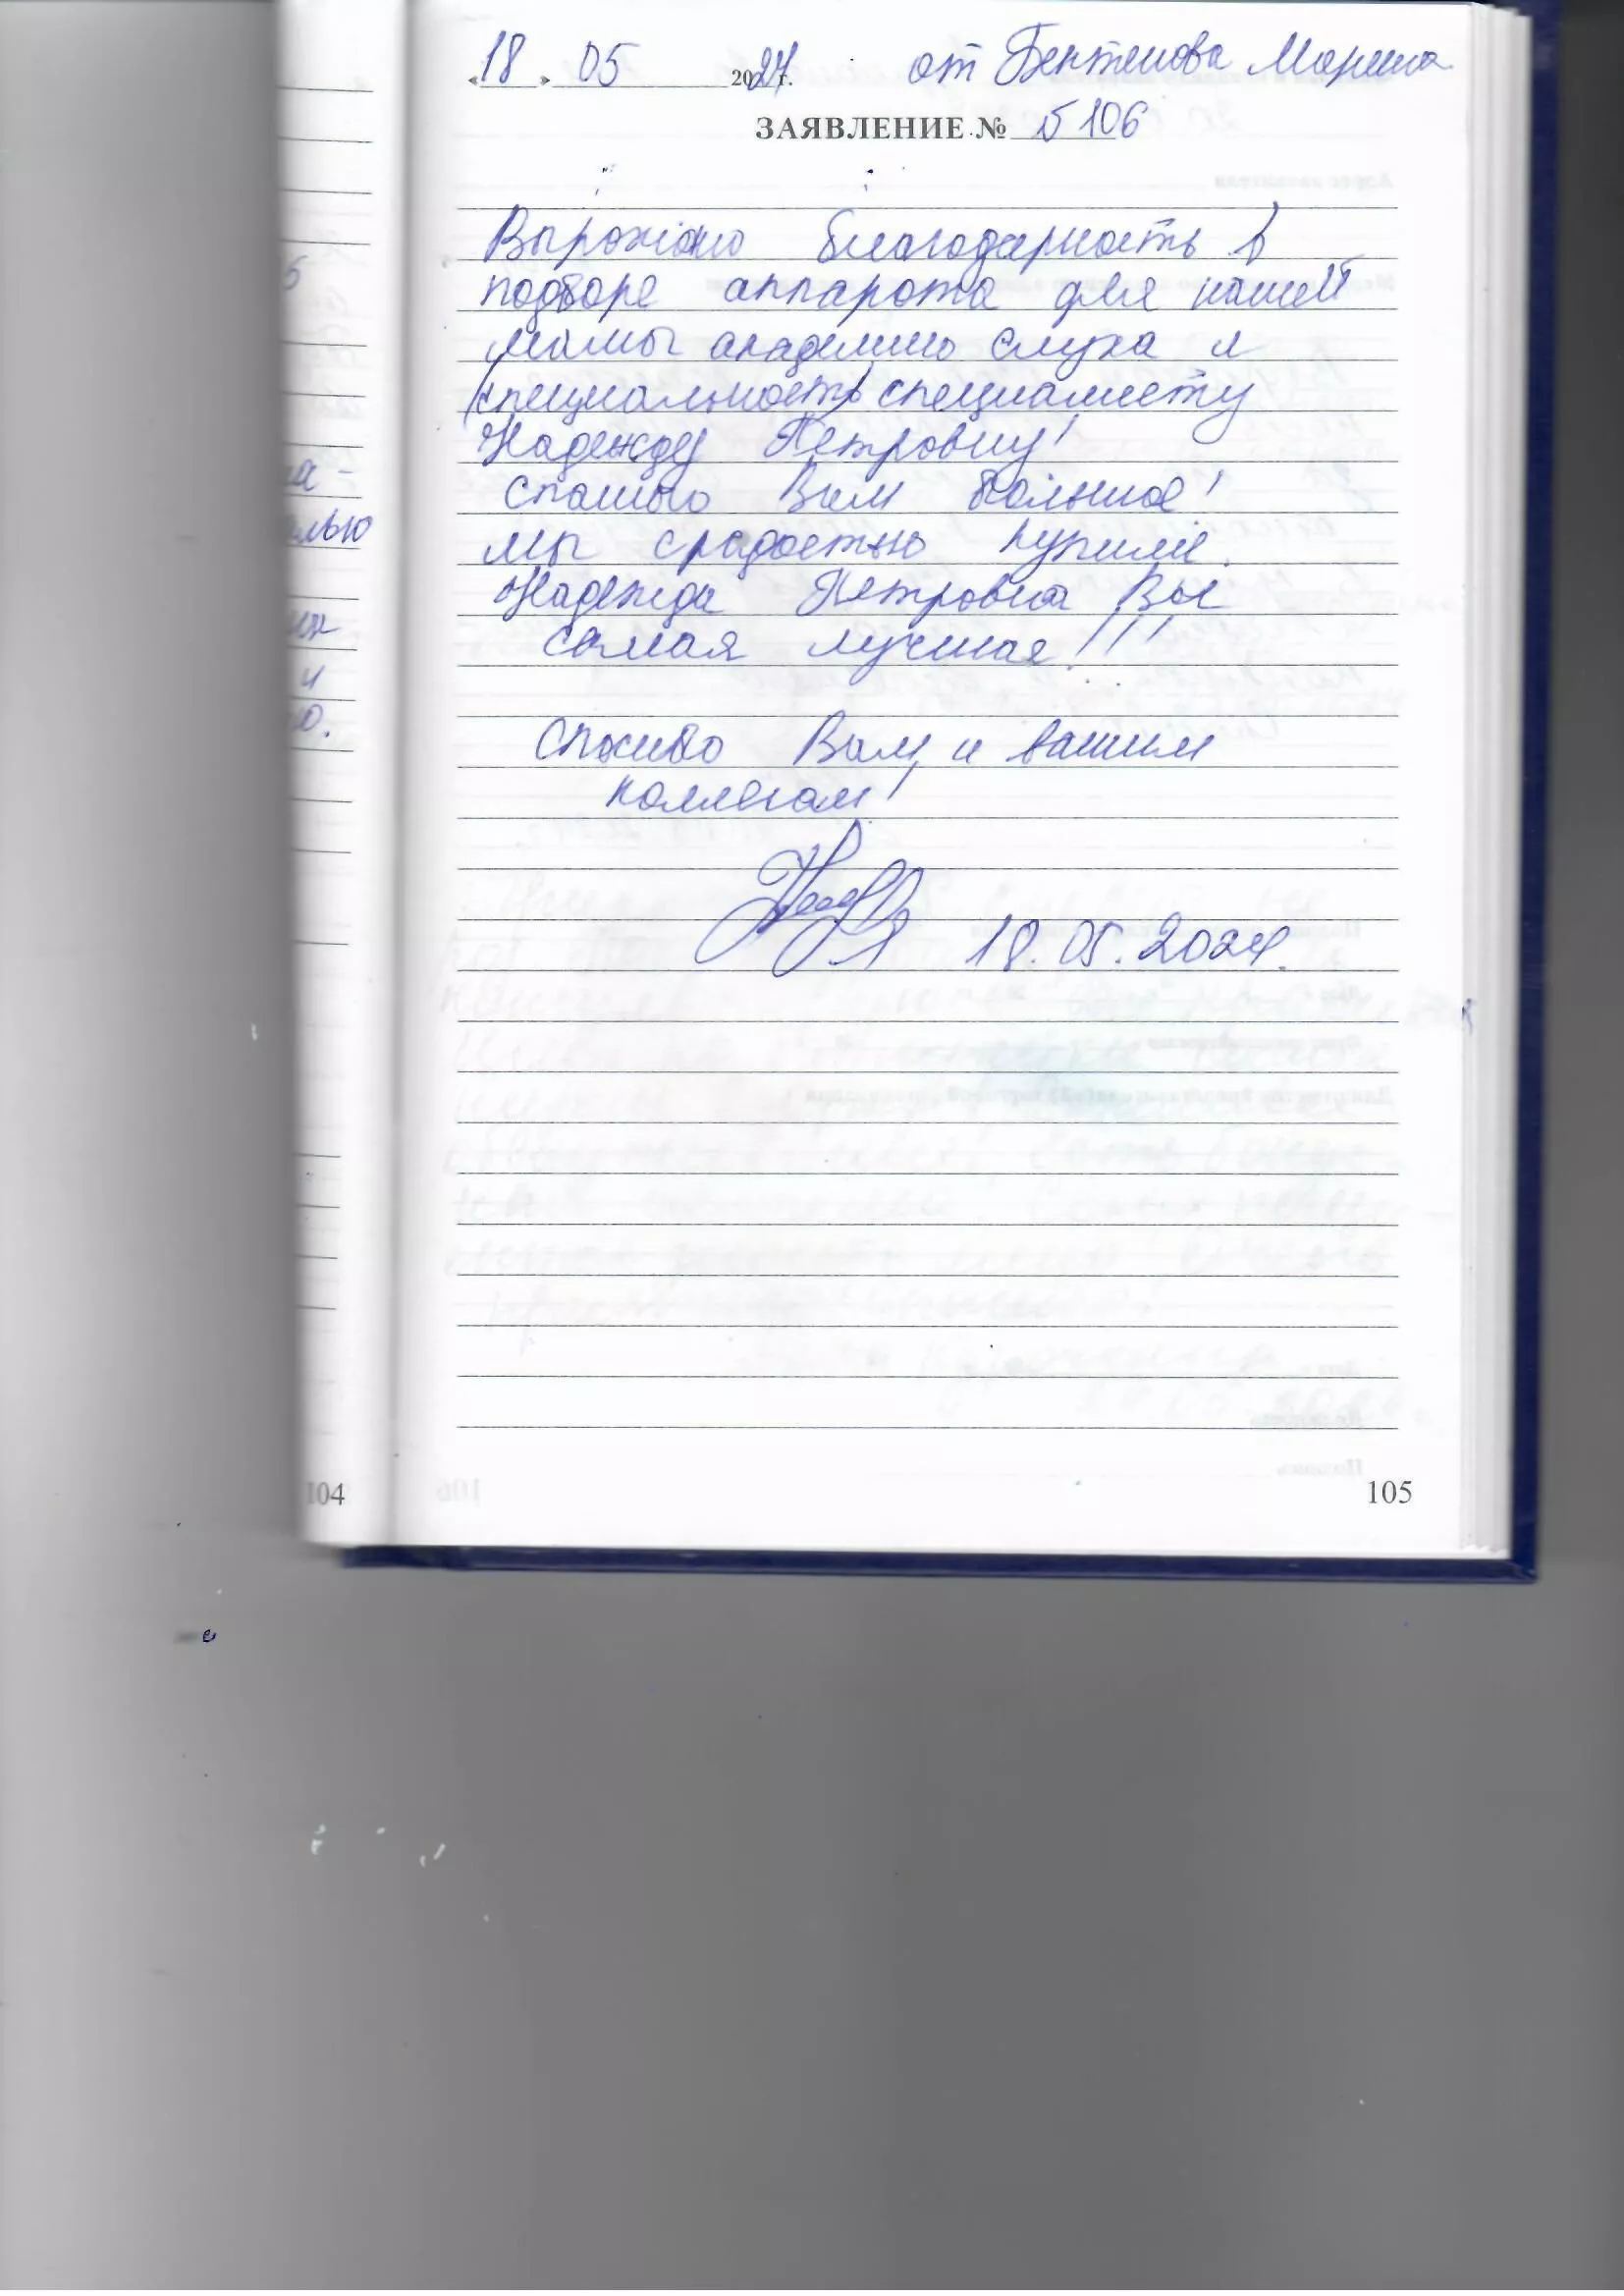 «18» 05 2024 г. от Бектенова Марина
ЗАЯВЛЕНИЕ № 5106
Выражаю благодарность в
подборе аппарата для нашей
мамы академию слуха и
(специальность) специалисту
Надежду Петровну!
спасибо Вам большое!
мы срадостью купили.
Надежда Петровна Вы
самая лучшая!!!
Спасибо Вам и вашим
коллегам!
18.05.2024.
5
на-
лью
и
ю.
104
105